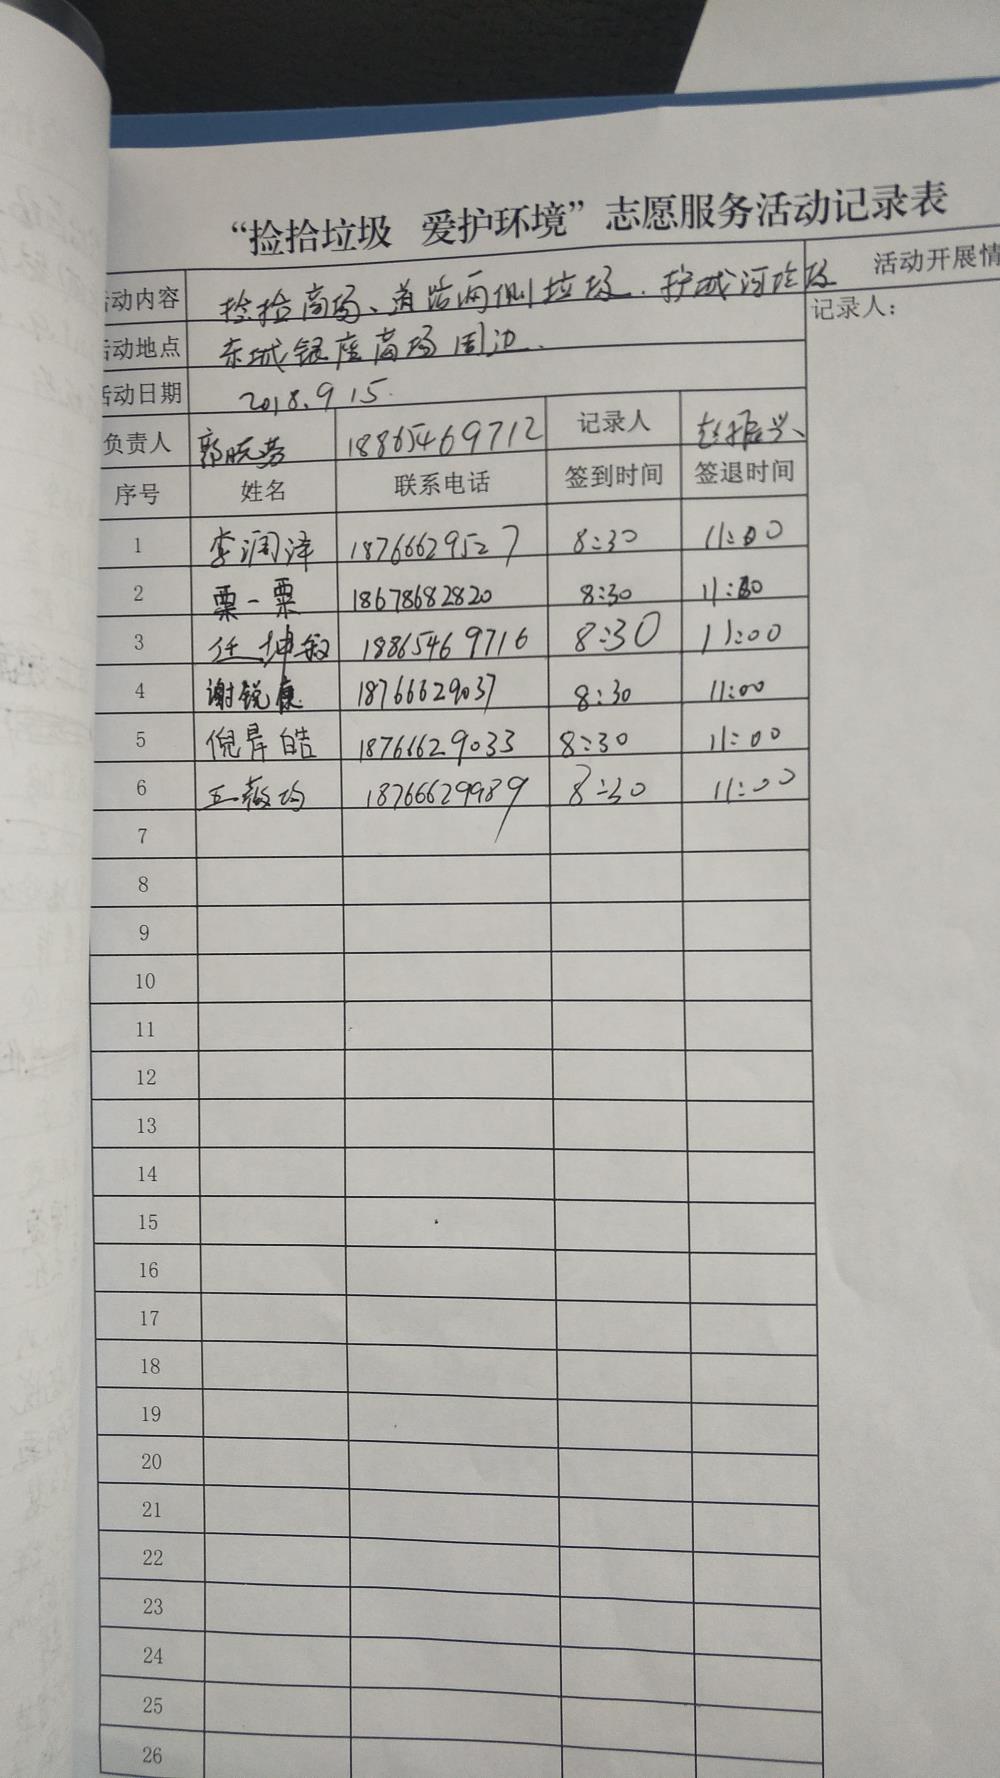 “捡拾垃圾 爱护环境”志愿服务活动记录表
活动内容 捡拾商场、道路两侧垃圾、护城河垃圾 活动开展情
活动地点 东城银座商场周边. 记录人:
活动日期 2018.9.15.
负责人 郭晓芳 18865469712 记录人 赵振兴
序号 姓名 联系电话 签到时间 签退时间
1 李润泽 18766629527 8:30 11:00
2 粟一粟 18678682820 8:30 11:00
3 任坤毅 18865469716 8:30 11:00
4 谢锐康 18766629037 8:30 11:00
5 倪昇皓 18766629033 8:30 11:00
6 18766629989 8:30 11:00
7
8
9
10
11
12
13
14
15
16
17
18
19
20
21
22
23
24
25
26